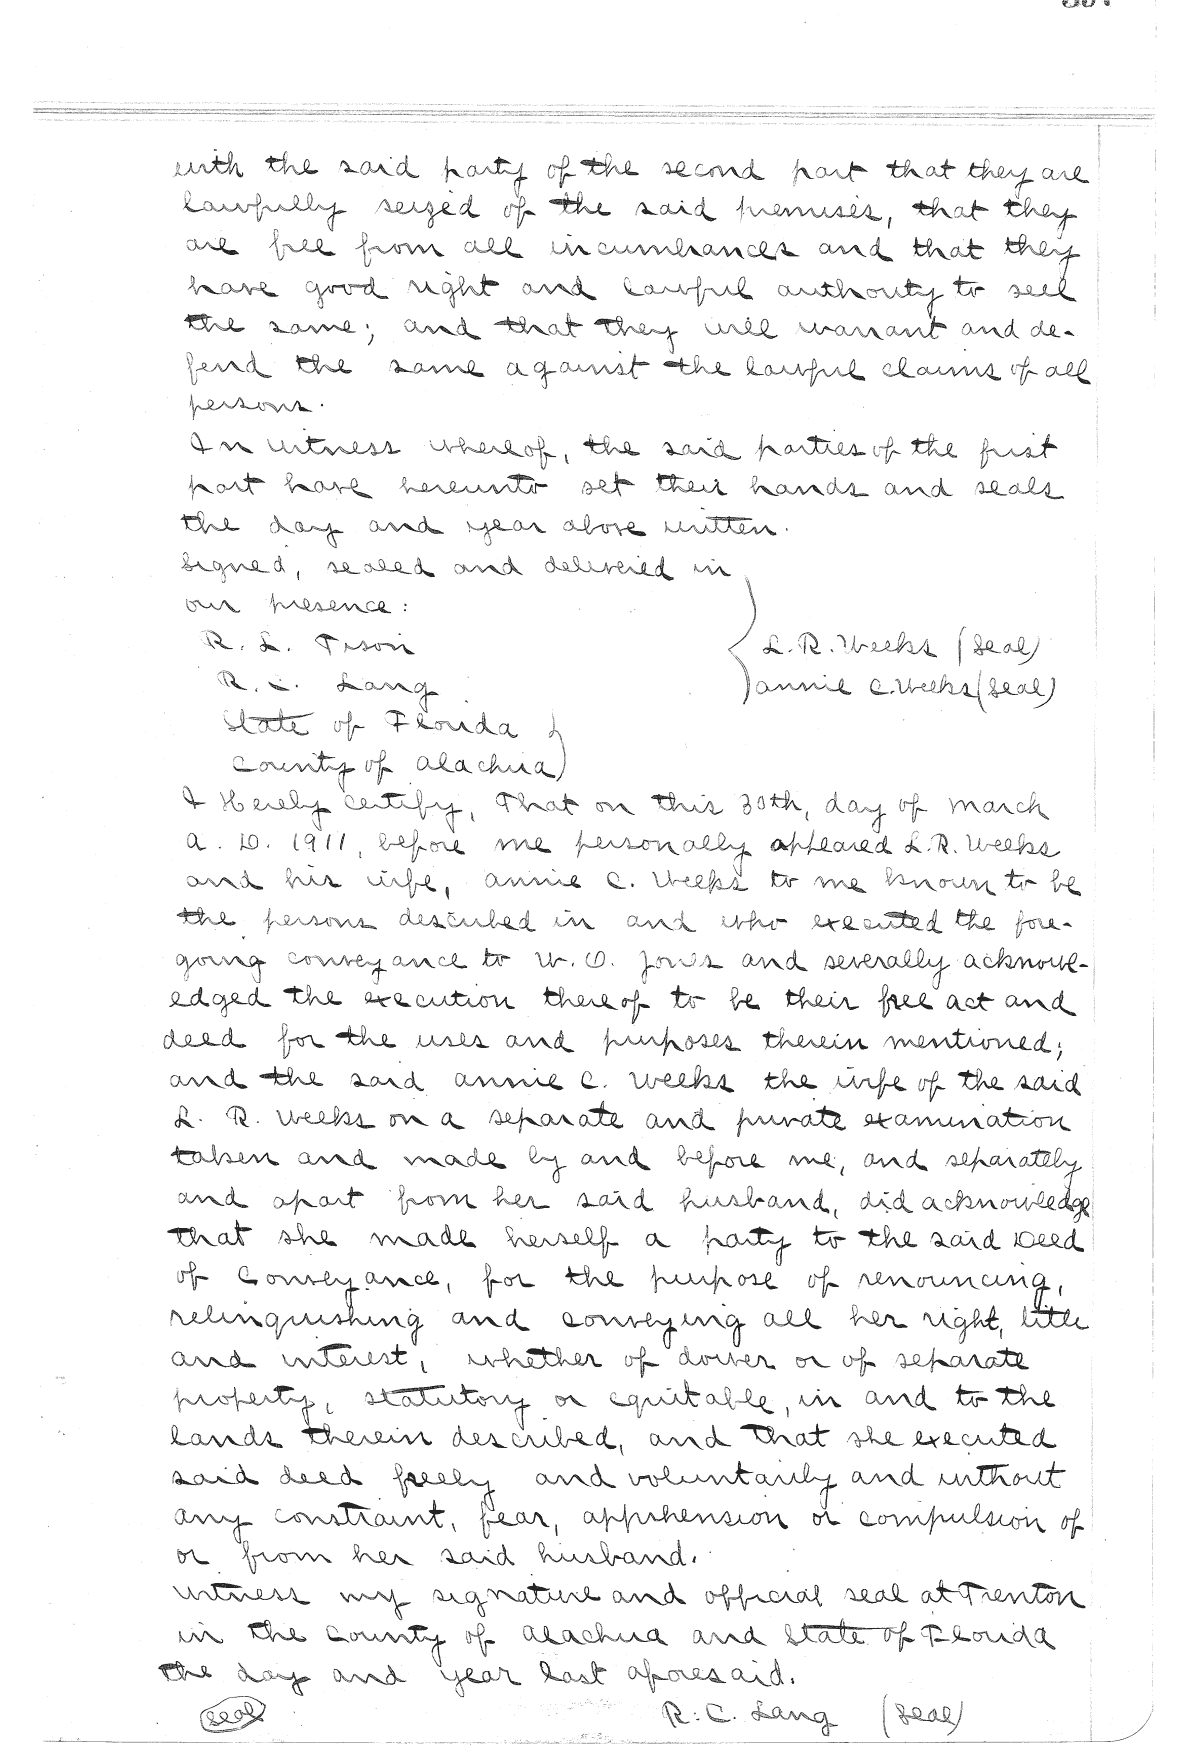 with the said party of the second part that they are
lawfully seized of the said premises, that they
are free from all incumbrances and that they
have good right and lawful authority to sell
the same; and that they will warrant and de-
fend the same against the lawful claims of all
persons.
In witness whereof, the said parties of the first
part have hereunto set their hands and seals
the day and year above written.
Signed, sealed and delivered in
our presence:
R. L. Tison
L. R. Weeks (Seal)
R. C. Lang
Annie C. Weeks (Seal)
State of Florida
County of Alachua
I Hereby Certify, That on this 30th, day of March
A. D. 1911, before me personally appeared L. R. Weeks
and his wife, Annie C. Weeks to me known to be
the persons described in and who executed the fore-
going conveyance to W. O. Jones and severally acknowl-
edged the execution thereof to be their free act and
deed for the uses and purposes therein mentioned;
and the said Annie C. Weeks the wife of the said
L. R. Weeks on a separate and private examination
taken and made by and before me, and separately
and apart from her said husband, did acknowledge
that she made herself a party to the said Deed
of Conveyance, for the purpose of renouncing,
relinquishing and conveying all her right, title
and interest, whether of dower or of separate
property, statutory or equitable, in and to the
lands therein described, and that she executed
said deed freely and voluntarily and without
any constraint, fear, apprehension or compulsion of
or from her said husband.
Witness my signature and official seal at Trenton
in the County of Alachua and State of Florida
the day and year last aforesaid.
Seal
R. C. Lang (Seal)